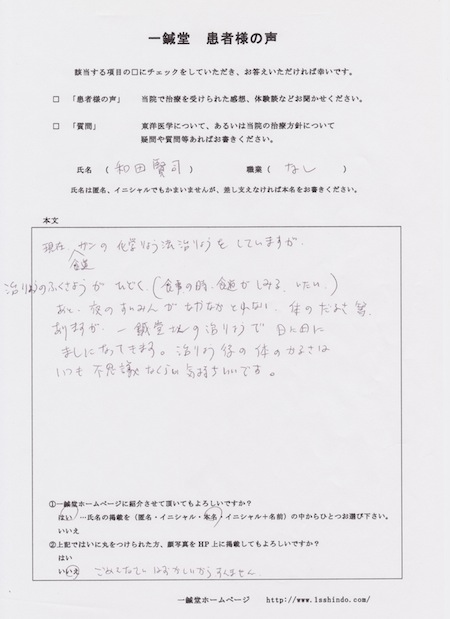 一鍼堂 患者様の声
該当する項目の□にチェックをしていただき、お答えいただければ幸いです。
□ 「患者様の声」 当院で治療を受けられた感想、体験談などお聞かせください。
□ 「質問」 東洋医学について、あるいは当院の治療方針について
疑問や質問等あればお書きください。
氏名 ( 和田賢司 ) 職業 ( なし )
氏名は匿名、イニシャルでもかまいませんが、差し支えなければ本名をお書きください。
本文
現在 ガンの 化学りょう法治りょうを していますが、
食道
治りょうのふくさようが ひどく、(食事の時、食道がしみる、いたい。)
あと、夜のすいみんが なかなかとれない、体のだるさ等、
ありますが、一鍼堂さんの治りょうで 日に日に
ましになってきます。治りょう後の体のかるさは
いつも 不思議なくらい気持ちいいです。
①一鍼堂ホームページに紹介させて頂いてもよろしいですか?
はい …氏名の掲載を(匿名・イニシャル・本名・イニシャル+名前)の中からひとつお選び下さい。
いいえ
②上記ではいに丸をつけられた方、顔写真をHP上に掲載してもよろしいですか?
はい
いいえ ごめんなさい はずかしいからすいません。
一鍼堂ホームページ http://www.1sshindo.com/